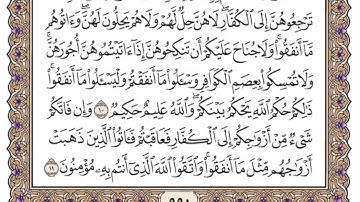 تَرْجِعُوهُنَّ إِلَى ٱلْكُفَّارِ ۖ لَا هُنَّ حِلٌّ لَّهُمْ وَلَا هُمْ يَحِلُّونَ لَهُنَّ ۖ وَءَاتُوهُم
مَّآ أَنفَقُوا۟ ۚ وَلَا جُنَاحَ عَلَيْكُمْ أَن تَنكِحُوهُنَّ إِذَآ ءَاتَيْتُمُوهُنَّ أُجُورَهُنَّ ۚ
وَلَا تُمْسِكُوا۟ بِعِصَمِ ٱلْكَوَافِرِ وَسْـَٔلُوا۟ مَآ أَنفَقْتُمْ وَلْيَسْـَٔلُوا۟ مَآ أَنفَقُوا۟ ۚ
ذَٰلِكُمْ حُكْمُ ٱللَّهِ ۖ يَحْكُمُ بَيْنَكُمْ ۚ وَٱللَّهُ عَلِيمٌ حَكِيمٌ ١٠ وَإِن فَاتَكُمْ
شَىْءٌ مِّنْ أَزْوَٰجِكُمْ إِلَى ٱلْكُفَّارِ فَعَاقَبْتُمْ فَـَٔاتُوا۟ ٱلَّذِينَ ذَهَبَتْ
أَزْوَٰجُهُم مِّثْلَ مَآ أَنفَقُوا۟ ۚ وَٱتَّقُوا۟ ٱللَّهَ ٱلَّذِىٓ أَنتُم بِهِۦ مُؤْمِنُونَ ١١
٥٥٠